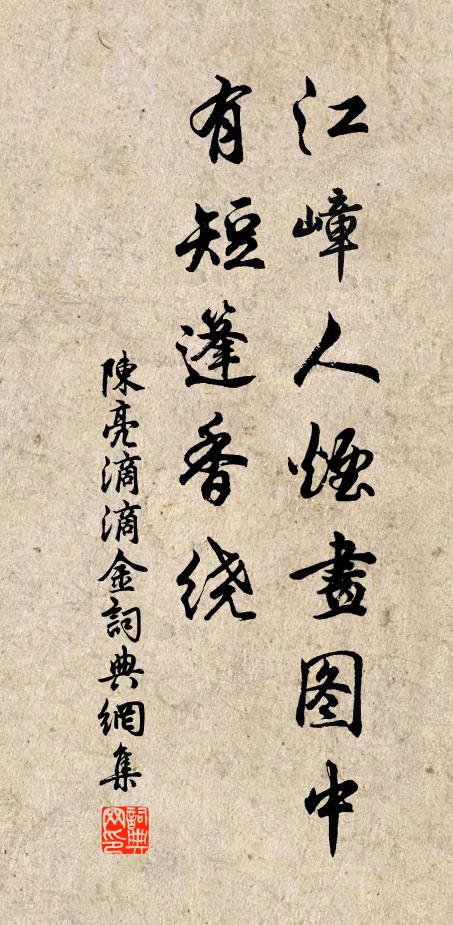 江嶂人煙畫图中
有短篷香绕
陳亮滴滴金詞典網集
詞典
网印